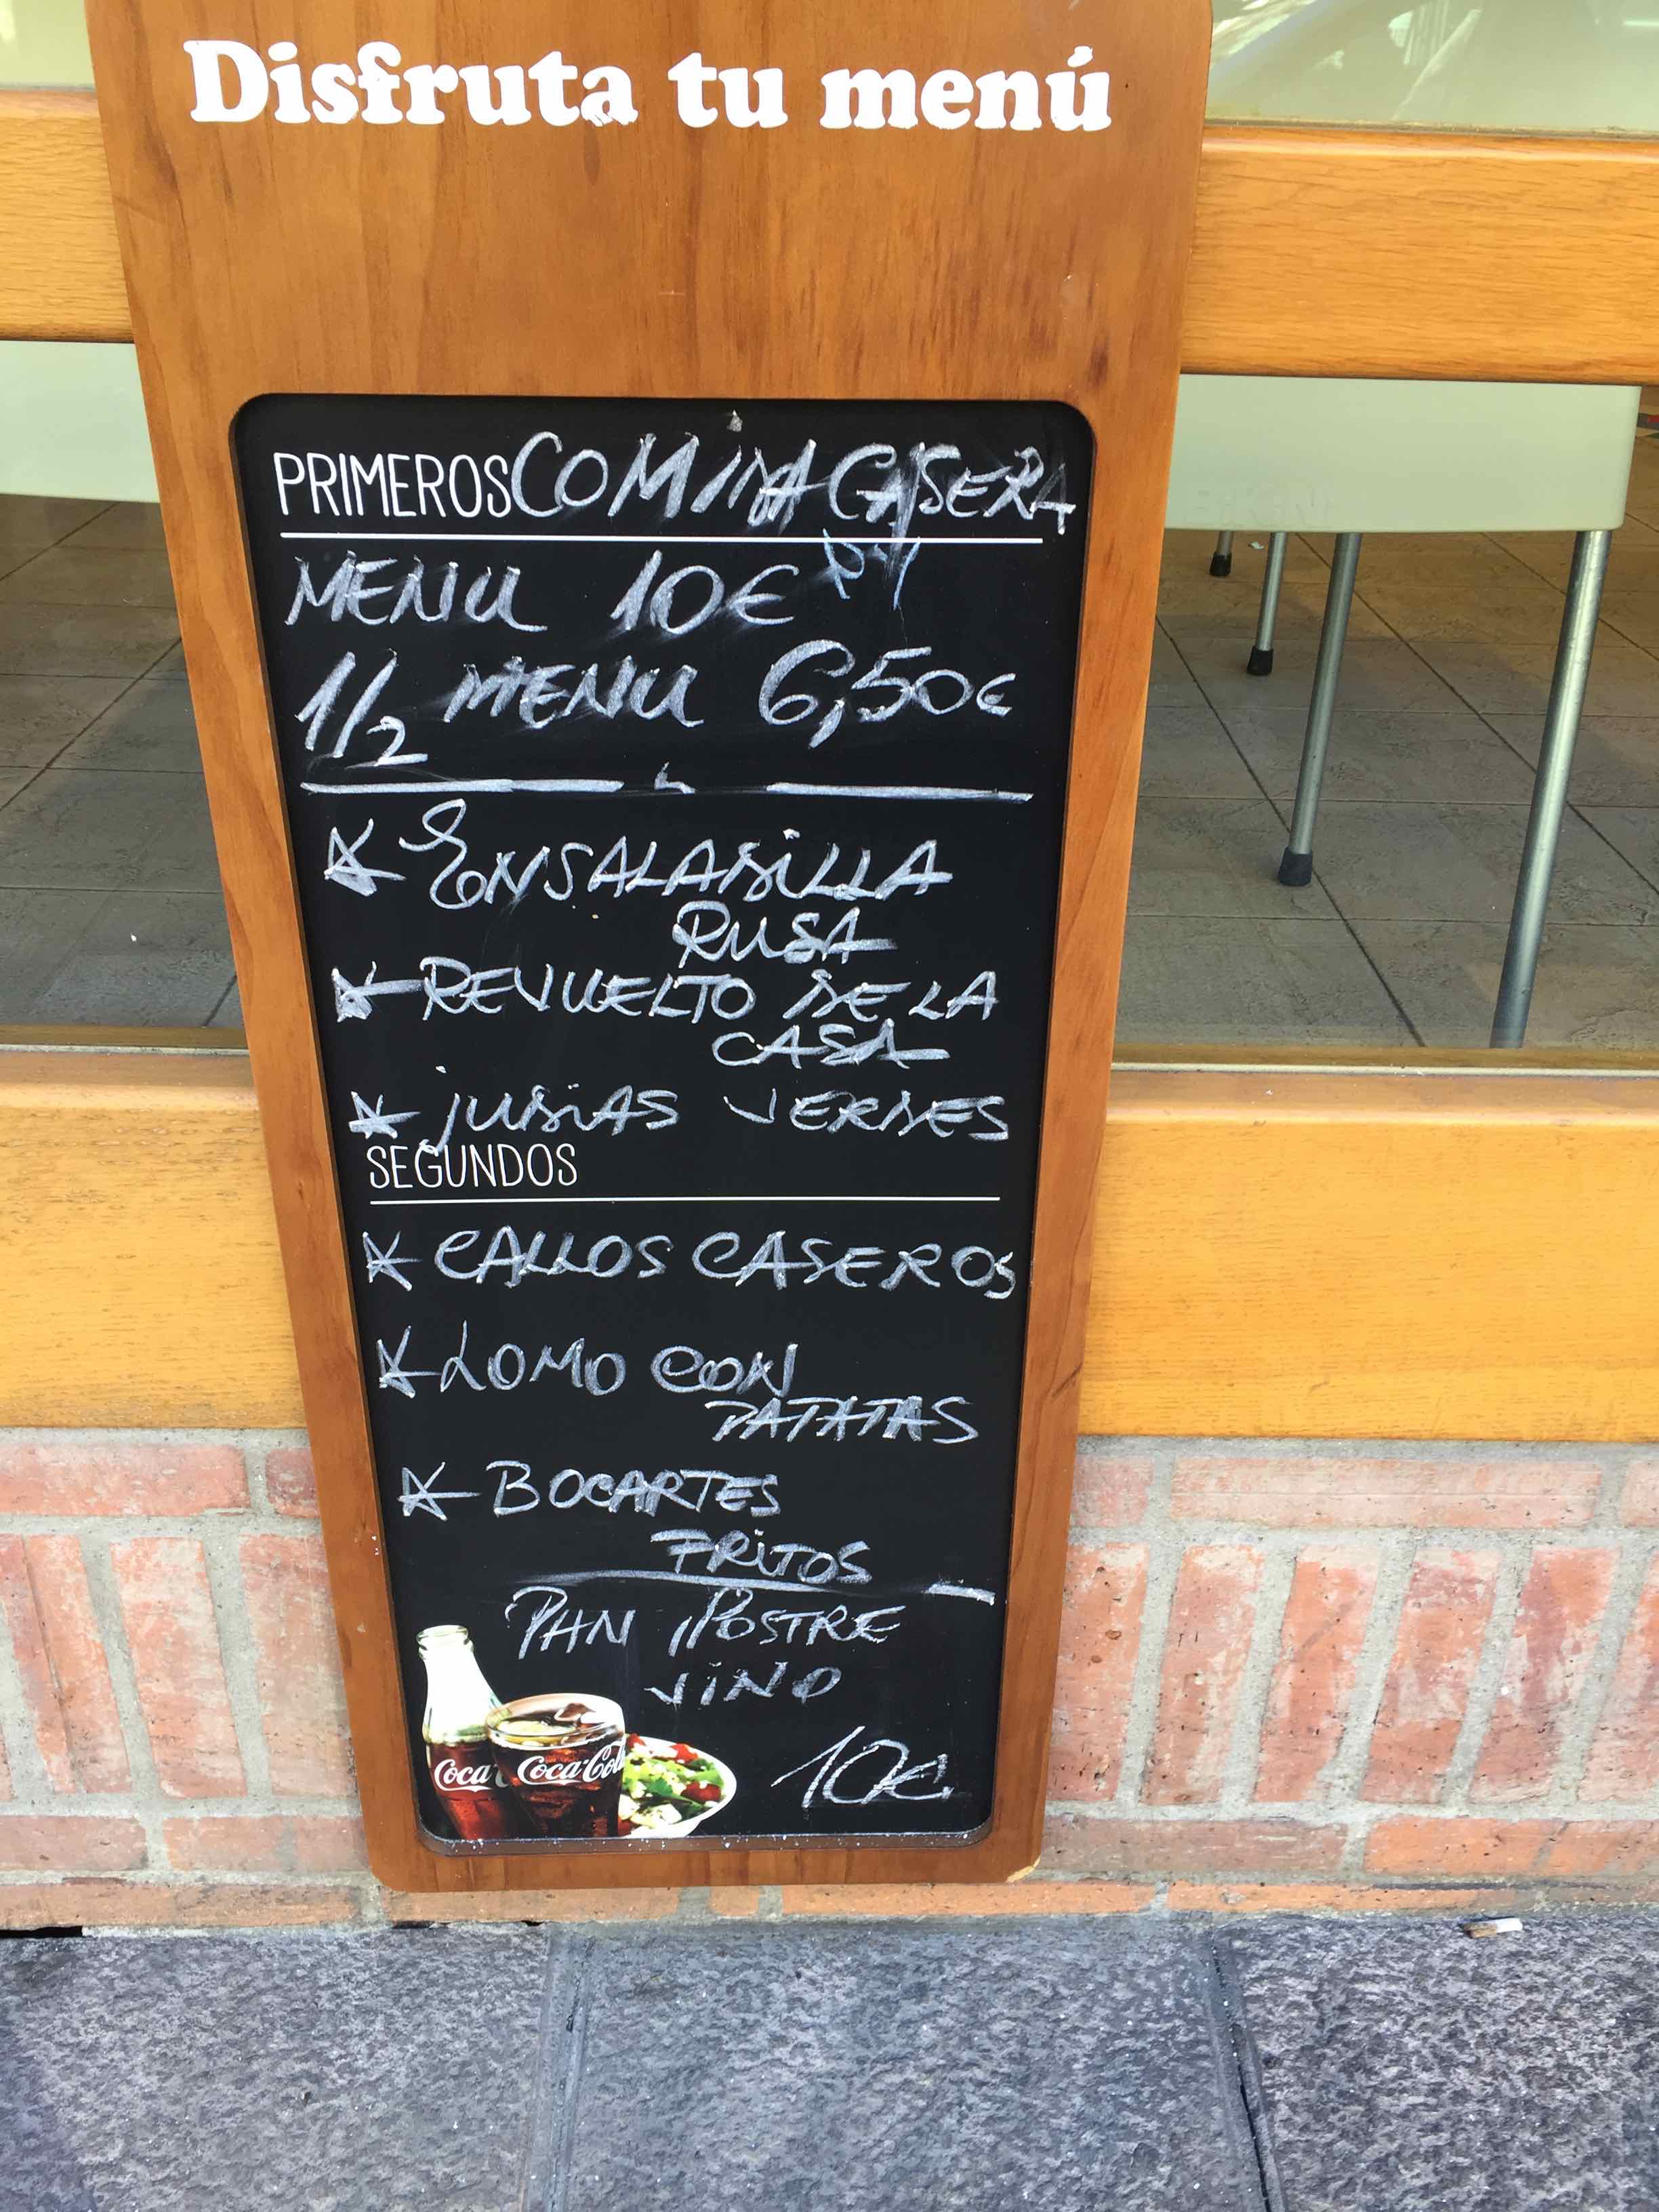 Disfruta tu menú
PRIMEROS COMIDA CASERA
MENU 10€
1/2 MENU 6,50€
* ENSALADILLA
RUSA
* REVUELTO DE LA
CASA
* JUDIAS VERDES
SEGUNDOS
* CALLOS CASEROS
* LOMO CON
PATATAS
* BOCARTES
FRITOS
PAN, POSTRE
VINO
Coca Coca-Cola
10€